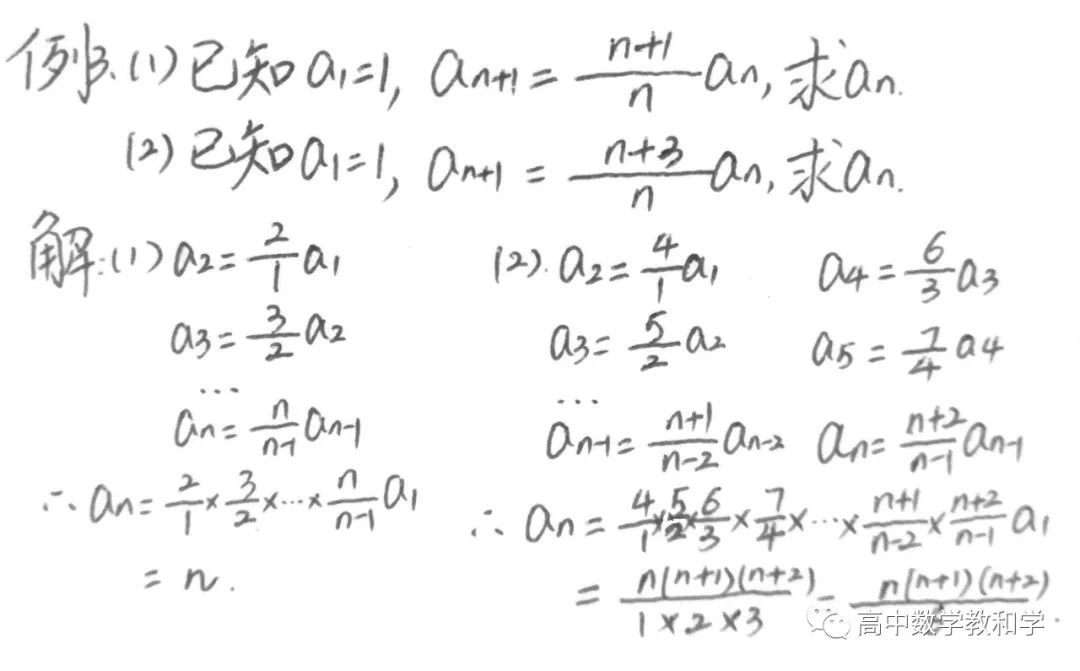 例3.(1)已知a₁=1, aₙ₊₁=\frac{n+1}{n}aₙ,求aₙ.
(2)已知a₁=1, aₙ₊₁=\frac{n+3}{n}aₙ,求aₙ.
解:(1)a₂=\frac{2}{1}a₁
a₃=\frac{3}{2}a₂
...
aₙ=\frac{n}{n-1}aₙ₋₁
∴aₙ=\frac{2}{1}×\frac{3}{2}×…×\frac{n}{n-1}a₁
=n.
(2).a₂=\frac{4}{1}a₁ a₄=\frac{6}{3}a₃
a₃=\frac{5}{2}a₂ a₅=\frac{7}{4}a₄
...
aₙ₋₁=\frac{n+1}{n-2}aₙ₋₂ aₙ=\frac{n+2}{n-1}aₙ₋₁
∴aₙ=\frac{4}{1}×\frac{5}{2}×\frac{6}{3}×\frac{7}{4}×…×\frac{n+1}{n-2}×\frac{n+2}{n-1}a₁
=\frac{n(n+1)(n+2)}{1×2×3}=\frac{n(n+1)(n+2)}{}.
高中数学教和学